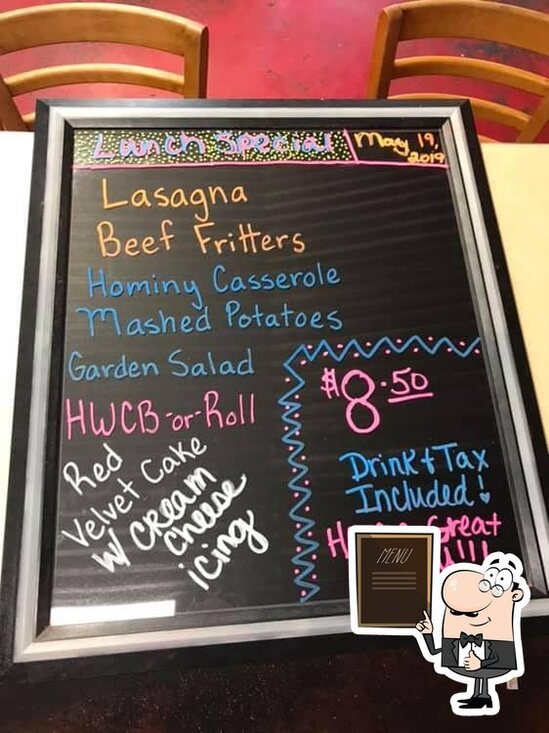 Lunch Special
May 19,
2019
Lasagna
Beef Fritters
Hominy Casserole
Mashed Potatoes
Garden Salad
HWCB-or-Roll
Red
Velvet Cake
w/ cream
cheese
icing
$8.50
Drink + Tax
Included!
Great
!!!
MENU